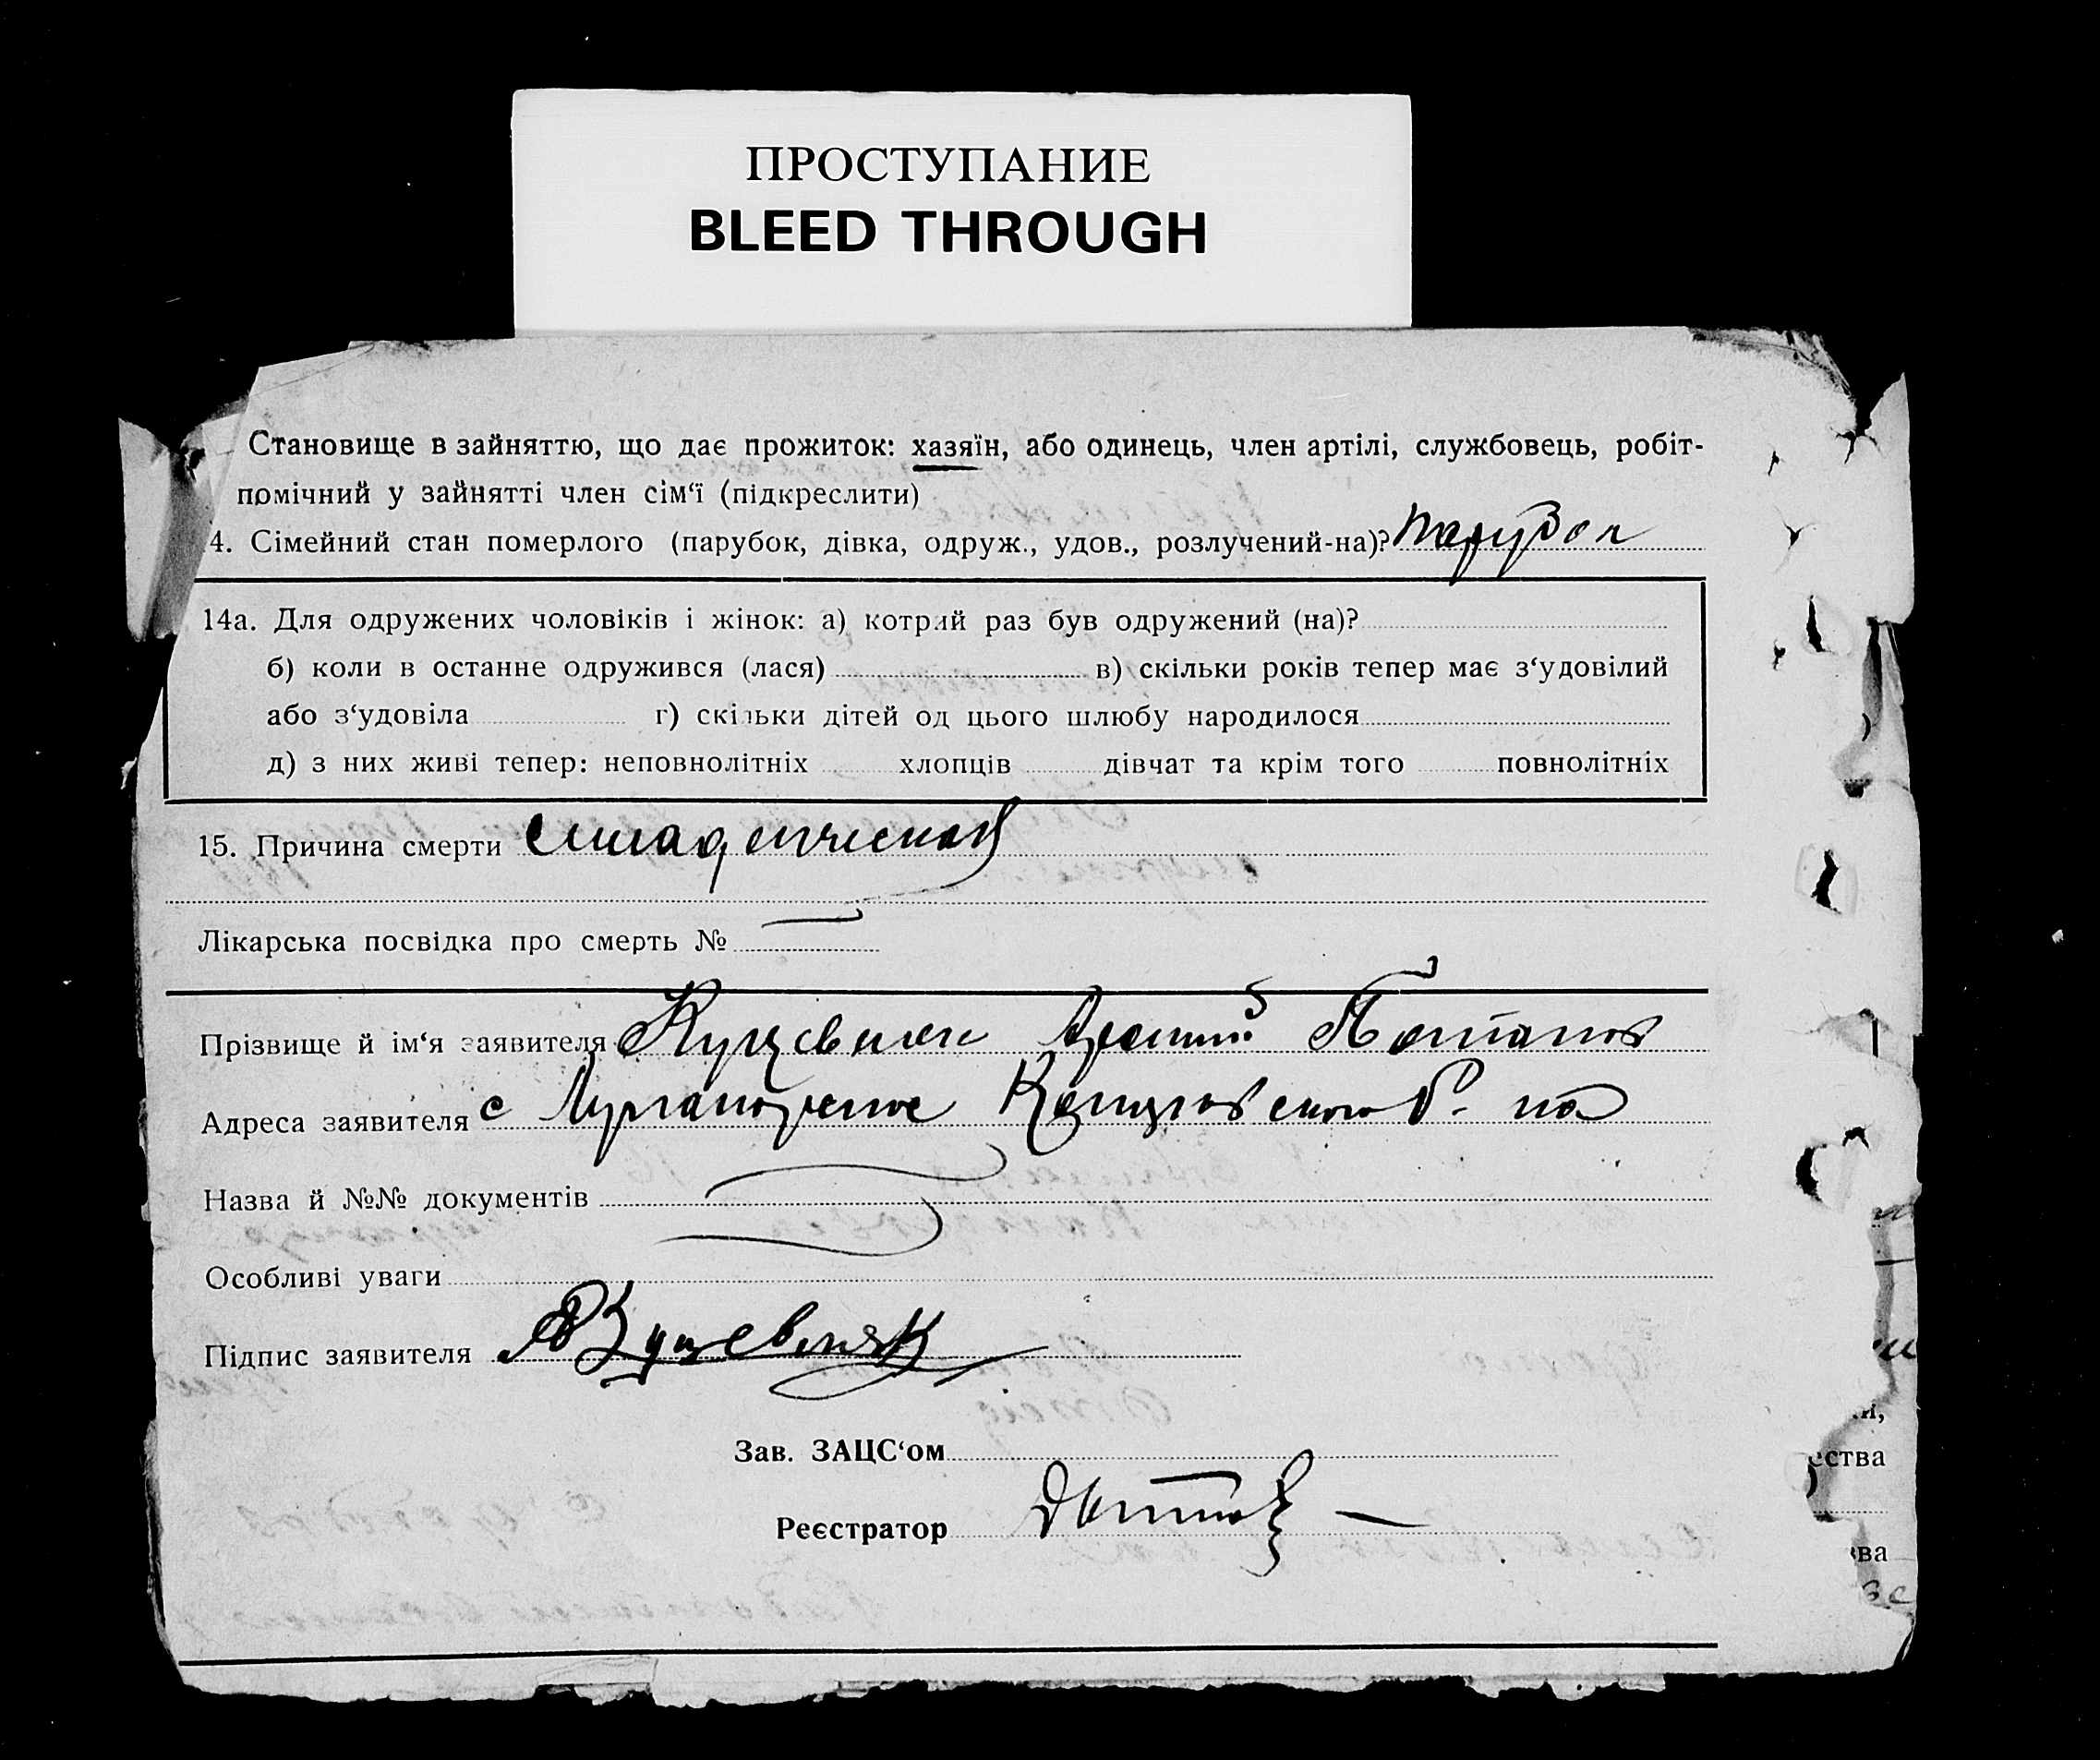 ПРОСТУПАНИЕ
BLEED THROUGH
Становище в зайняттю, що дає прожиток: хазяїн, або одинець, член артілі, службовець, робіт-
помічний у зайнятті член сім‘ї (підкреслити)
4. Сімейний стан померлого (парубок, дівка, одруж., удов., розлучений-на)? парубок
14а. Для одружених чоловіків і жінок: а) котрий раз був одружений (на)?
б) коли в останне одружився (лася) в) скільки років тепер має з‘удовілий
або з‘удовіла г) скільки дітей од цього шлюбу народилося
д) з них живі тепер: неповнолітніх хлопців дівчат та крім того повнолітніх
15. Причина смерти
Лікарська посвідка про смерть №
Прізвище й ім‘я заявителя
Адреса заявителя с
Назва й №№ документів
Особливі уваги
Підпис заявителя
Зав. ЗАЦС‘ом
Реєстратор
ества
ва